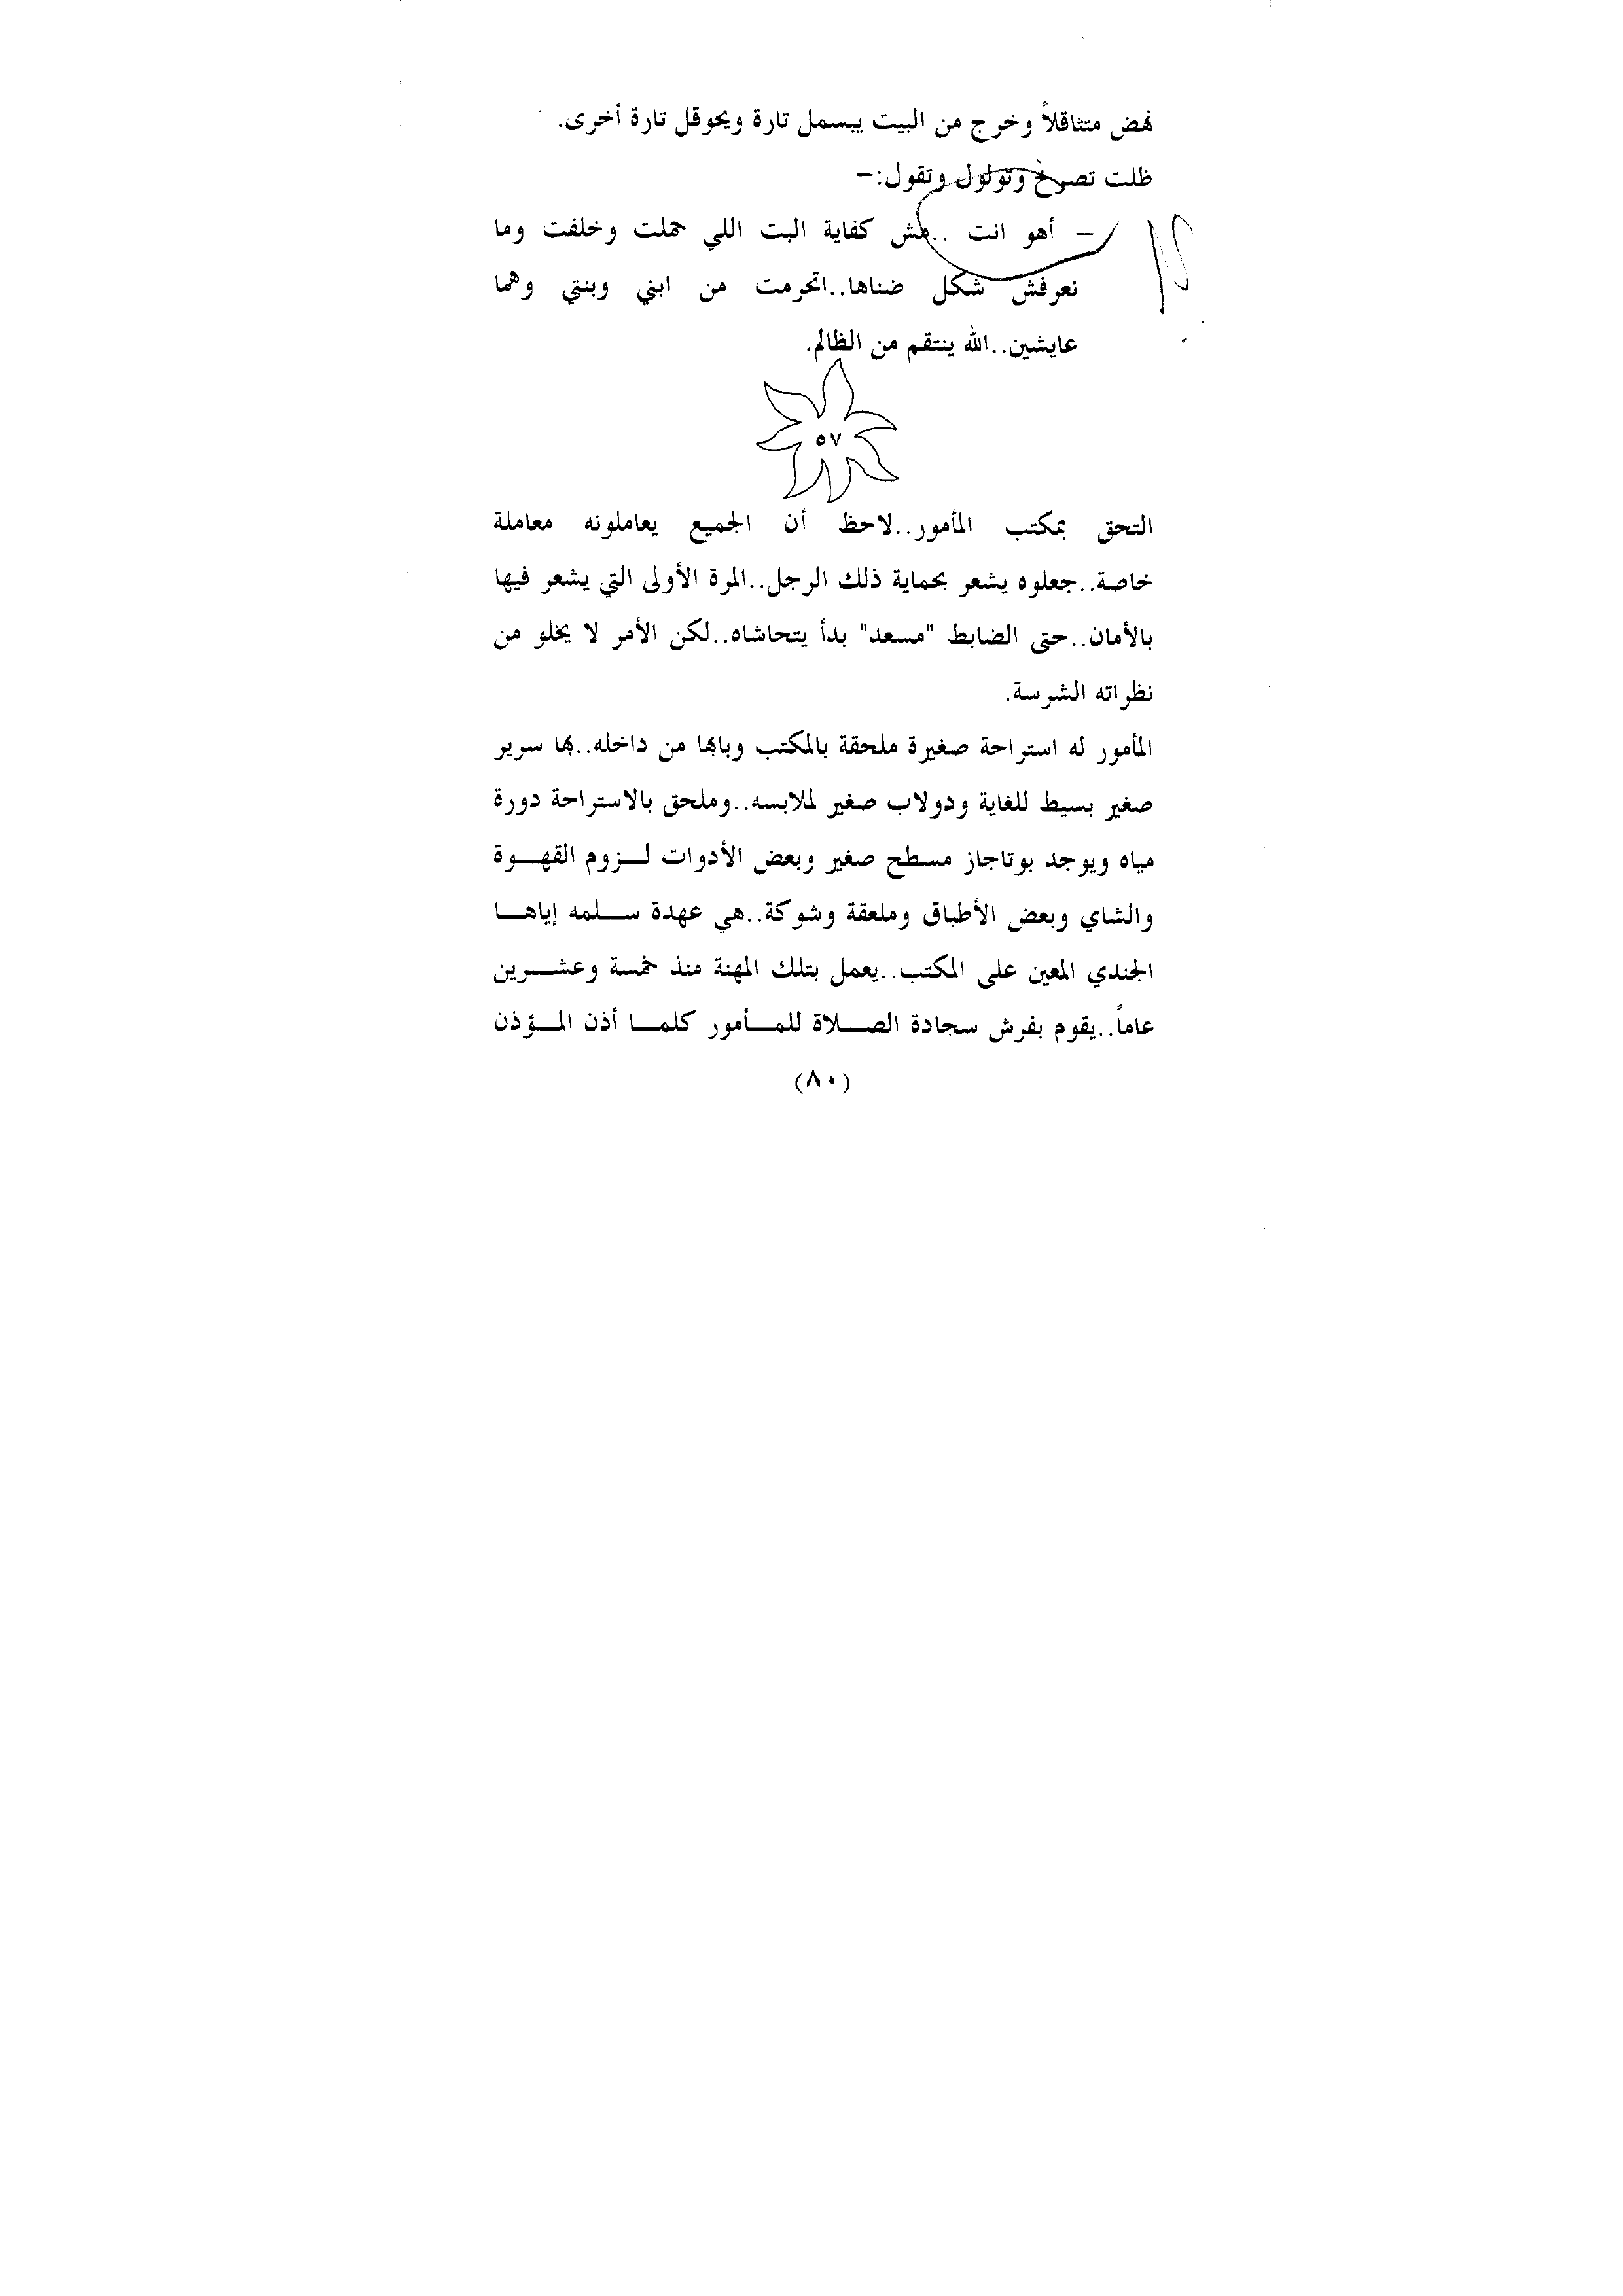 نهض متثاقلاً وخرج من البيت يبسمل تارة ويحوقل تارة أخرى.
ظلت تصرخ وتولول وتقول:–
– أهو انت ..مش كفاية البت اللي حملت وخلفت وما
نعرفش شكل ضناها..اتحرمت من ابني وبنتي وهما
عايشين..الله ينتقم من الظالم.
٥٧
التحق بمكتب المأمور..لاحظ أن الجميع يعاملونه معاملة
خاصة..جعلوه يشعر بحماية ذلك الرجل..المرة الأولى التي يشعر فيها
بالأمان..حتى الضابط "مسعد" بدأ يتحاشاه..لكن الأمر لا يخلو من
نظراته الشرسة.
المأمور له استراحة صغيرة ملحقة بالمكتب وبابها من داخله..بها سرير
صغير بسيط للغاية ودولاب صغير لملابسه..وملحق بالاستراحة دورة
مياه ويوجد بوتاجاز مسطح صغير وبعض الأدوات لـزوم القهـوة
والشاي وبعض الأطباق وملعقة وشوكة..هي عهدة سـلمه إياهـا
الجندي المعين على المكتب..يعمل بتلك المهنة منذ خمسة وعشـرين
عاماً..يقوم بفرش سجادة الصـلاة للمـأمور كلمـا أذن المـؤذن
(٨٠)